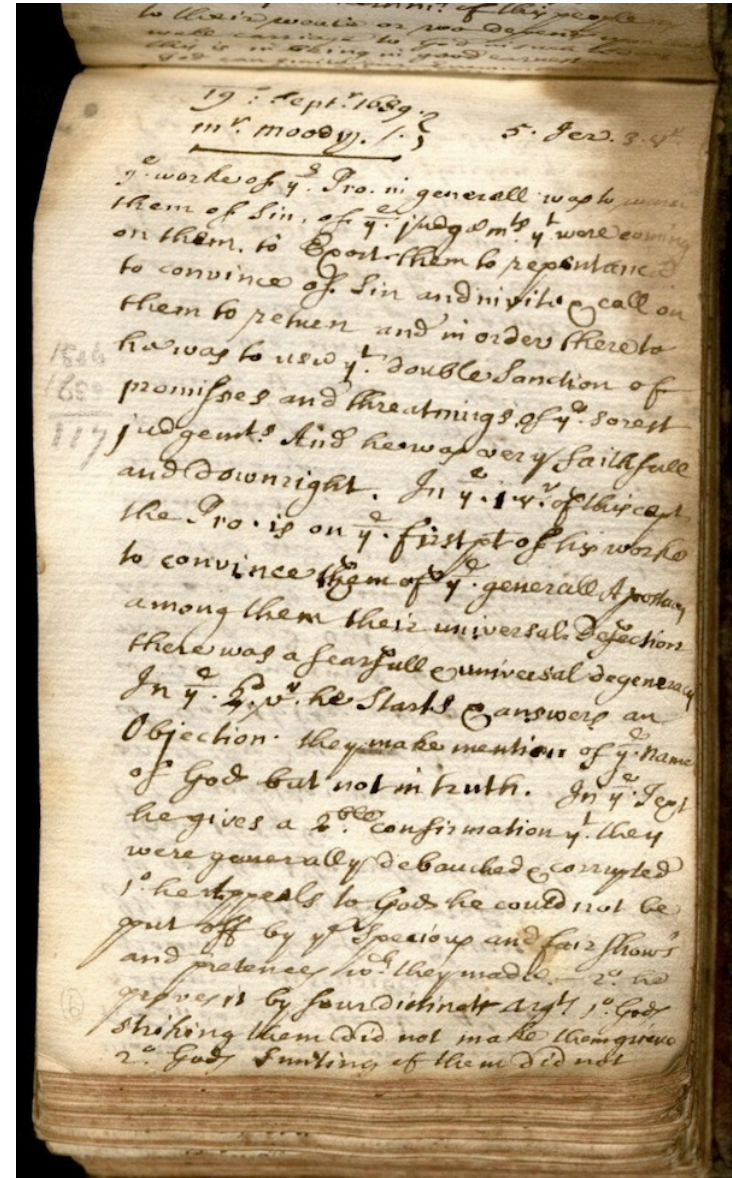 to their
make carriere to God in such
this is in thing in good earnest
God can
19º. Sept.r 1689.
mr. moody. /. 5. Jer. 3. vr
ye. worke of ye. Pro. in generall was to warne
them of Sin, of ye. judgemts. yt were coming
on them. to Exort. them to repentance
to convince of Sin and invite & call on
them to return and in order thereto
he was to use yt. double Sanction of
promisses and threatnings of ye. sorest
judgemts. And he was very faithfull
and downright. In ye. 1. vr. of this capt
the Pro. is on ye. first pt of his worke
to convince them of ye. generall Apostacy
among them their universal Defection
there was a fearfull & universal degeneracy
In ye. 2d. vr. he Starts & answers an
Objection. they make mention of ye. Name
of God but not in truth. In ye. Text
he gives a 2.ble confirmation yt. they
were generally debauched & corrupted
1º. he Appeals to God he could not be
put off by ye Specious and fair Shows
and pretences wch. they made — 2º. he
proves it by four distinct Argts. 1º. Gods
striking them did not make them grieve
2º. Gods Smiting of them did not
1806
1689
117
6